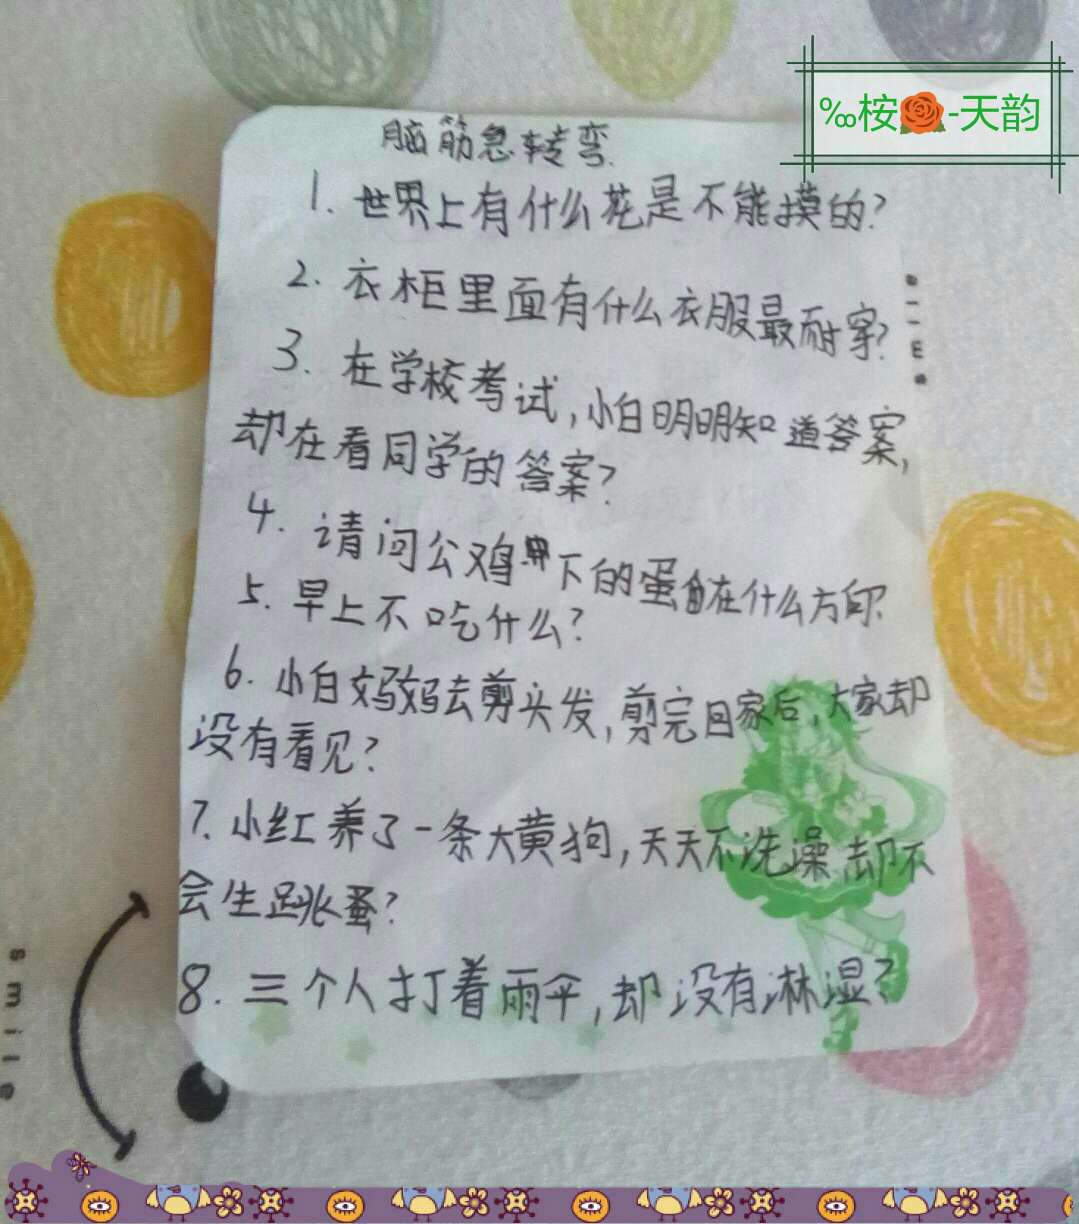 ‰桉-天韵
脑筋急转弯.
1. 世界上有什么花是不能摸的?
2. 衣柜里面有什么衣服最耐穿?
3. 在学校考试,小白明明知道答案,
却在看同学的答案?
4. 请问公鸡下的蛋在什么方向?
5. 早上不吃什么?
6. 小白妈妈去剪头发,剪完回家后,大家却
没有看见?
7. 小红养了一条大黄狗,天天不洗澡却不
会生跳蚤?
8. 三个人打着雨伞,却没有淋湿?
smile